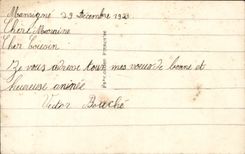 Mansigné 29 Décembre 1923
Chère Marraine
Cher Cousin
Je vous adresse tous mes voeux de bonne et
heureuse année
Victor Bouché